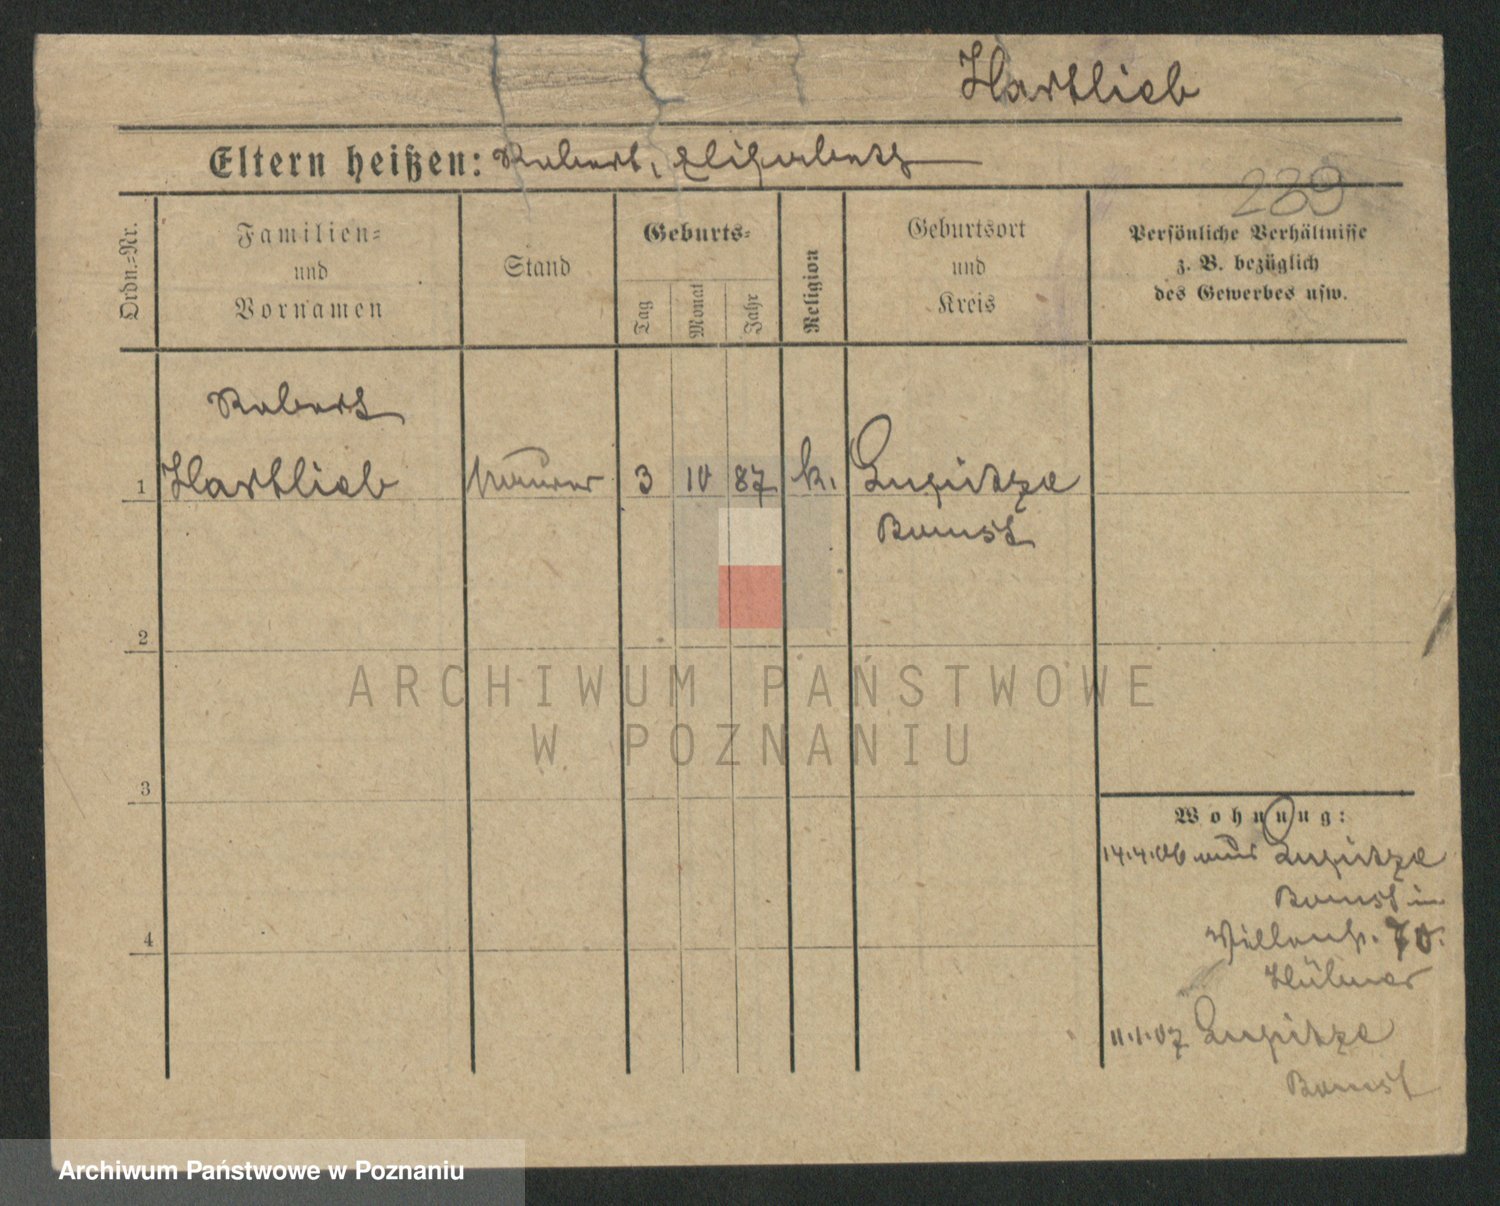 Hartlieb
Eltern heißen: Robert, Elisabeth
239
Ordn.-Nr.
Familien-
und
Vornamen
Stand
Geburts-
Tag
Monat
Jahr
Religion
Geburtsort
und
Kreis
Persönliche Verhältnisse
z. B. bezüglich
des Gewerbes usw.
Robert
1 Hartlieb Maurer 3 10 87 k. Lupitze
Bomst
2
ARCHIWUM PAŃSTWOWE
W POZNANIU
3
Wohnung:
14.4.06 aus Lupitze
Bomst in
70.
4
11.1.07 Lupitze
Bomst
Archiwum Państwowe w Poznaniu